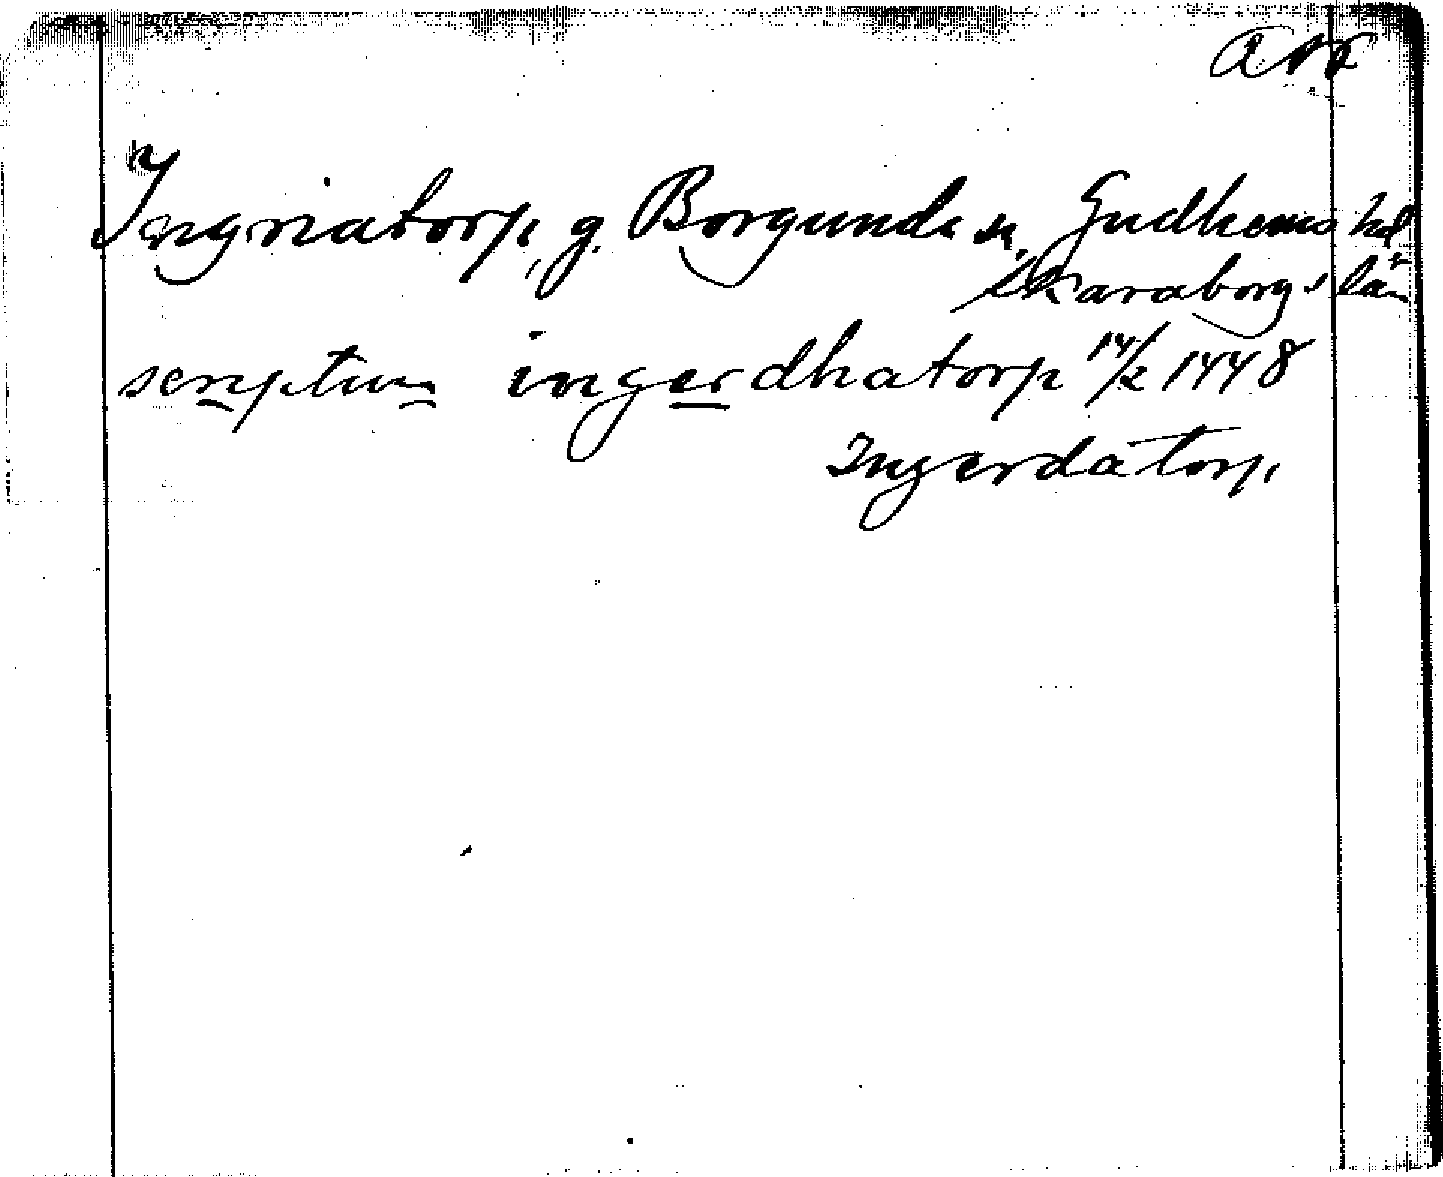 Ingriatorp, g. Borgunda sn, Gudhems hd
Skaraborgs län
scriptum ingerdhatorp 14/2 1448
Ingerdatorp